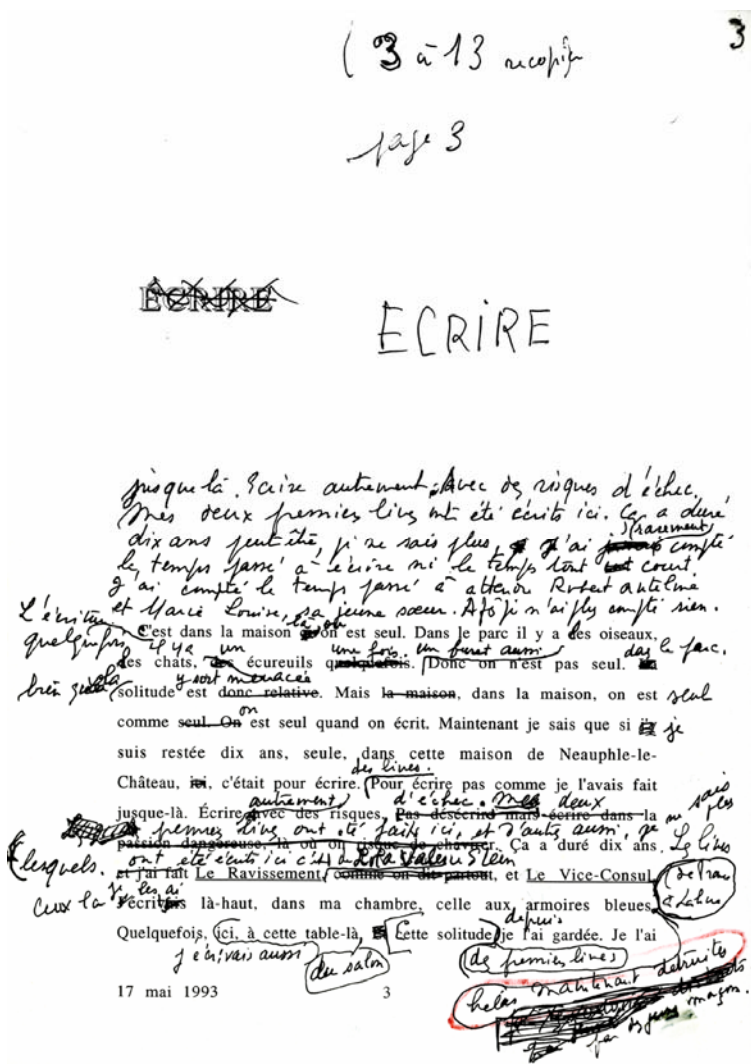 3
( 3 à 13 recopier
page 3
ÉCRIRE
ECRIRE
jusque là. Ecrire autrement. Avec des risques d'échec.
Mes deux premiers livres ont été écrits ici. Ça a duré
dix ans peut être, je ne sais plus, j'ai rarement compté
le temps passé à écrire ni le temps tout court
J'ai compté le temps passé à attendre Robert Antelme
et Marie Louise, sa jeune sœur. Après je n'ai plus compté rien.
C'est dans la maison on est seul. Dans le parc il y a des oiseaux,
quelquefois il y a un une fois, un furet aussi dans le parc.
des chats, des écureuils quelquefois. Donc on n'est pas seul.
y sont menacés
solitude est donc relative. Mais la maison, dans la maison, on est seul
comme seul. On on est seul quand on écrit. Maintenant je sais que si je
suis restée dix ans, seule, dans cette maison de Neauphle-le-
des livres.
Château, c'était pour écrire. Pour écrire pas comme je l'avais fait
autrement d'échec. Mes deux
jusque-là. Écrire avec des risques, Pas désécrire mais écrire dans la
premiers livres ont été faits ici, et d'autres aussi, je ne sais plus
passion dangereuse, là où on risque de chavirer. Ça a duré dix ans
lesquels. ont été écrits ici Lola Valérie Stein Les livres
et j'ai fait Le Ravissement, comme on dit partout, et Le Vice-Consul
ceux là je les ai
écrits là-haut, dans ma chambre, celle aux armoires bleues,
depuis
Quelquefois, ici, à cette table-là, Cette solitude je l'ai gardée. Je l'ai
j'écrivais aussi du salon de premiers livres
hélas maintenant détruites
17 mai 1993
3